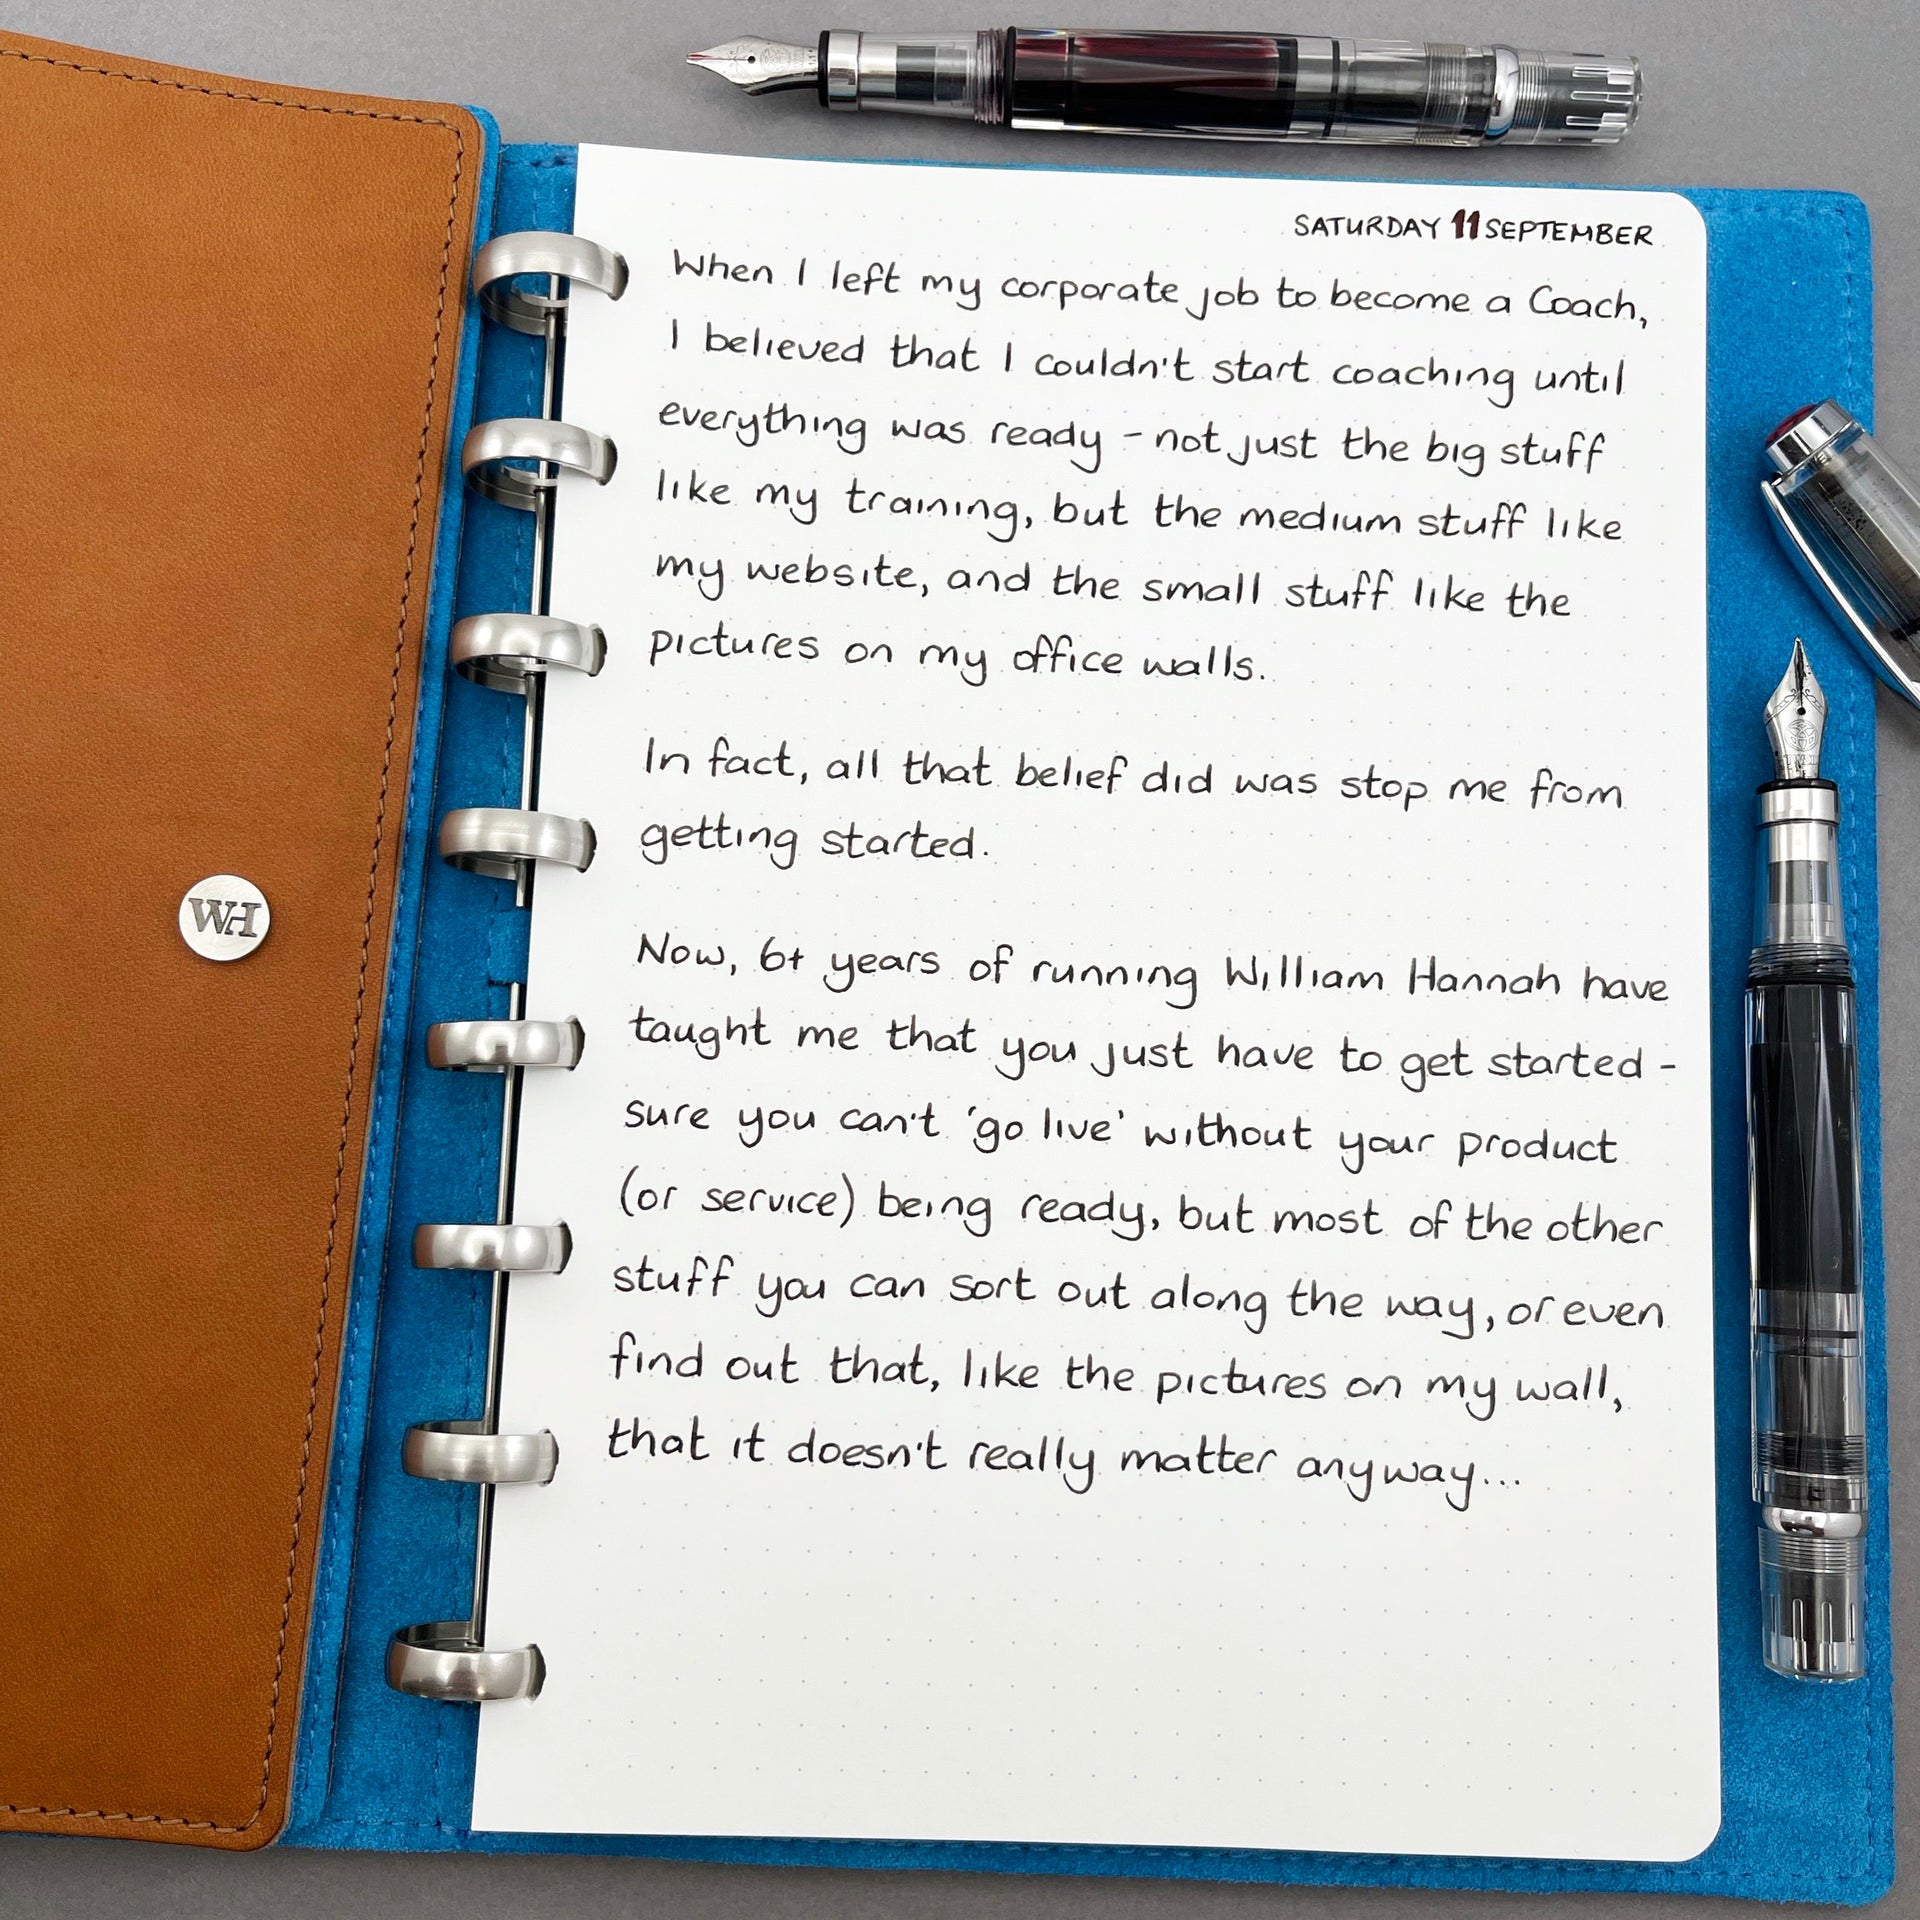 SATURDAY 11 SEPTEMBER
When I left my corporate job to become a Coach,
I believed that I couldn't start coaching until
everything was ready - not just the big stuff
like my training, but the medium stuff like
my website, and the small stuff like the
pictures on my office walls.
In fact, all that belief did was stop me from
getting started.
Now, 6+ years of running William Hannah have
taught me that you just have to get started -
sure you can't 'go live' without your product
(or service) being ready, but most of the other
stuff you can sort out along the way, or even
find out that, like the pictures on my wall,
that it doesn't really matter anyway...
WH